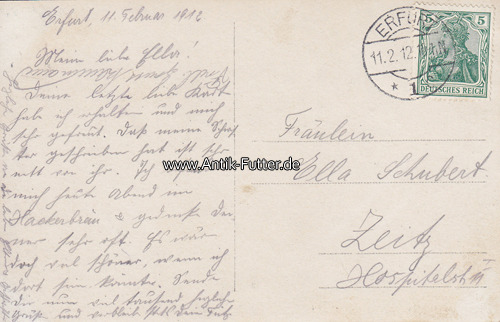 Erfurt, 11. Februar 1912
Meine liebe Ella!
Deine letzte liebe Karte
habe ich erhalten und mich
sehr gefreut. Daß meine Schwe
ster geschrieben hat ist sehr
nett von ihr. Ich
mich heute Abend im
Hackerbräu & gedenke Dei
ner sehr oft. Es wäre
doch viel schöner, wenn ich
dort sein könnte. Sende
Dir nun viel tausend herzliche
Grüße und verbleibe stets Dein Fritz
ERFURT
11.2.12.
* 1
5
DEUTSCHES REICH
www.Antik-Futter.de
Fräulein
Ella Schubert
Zeitz
Hospitalstr